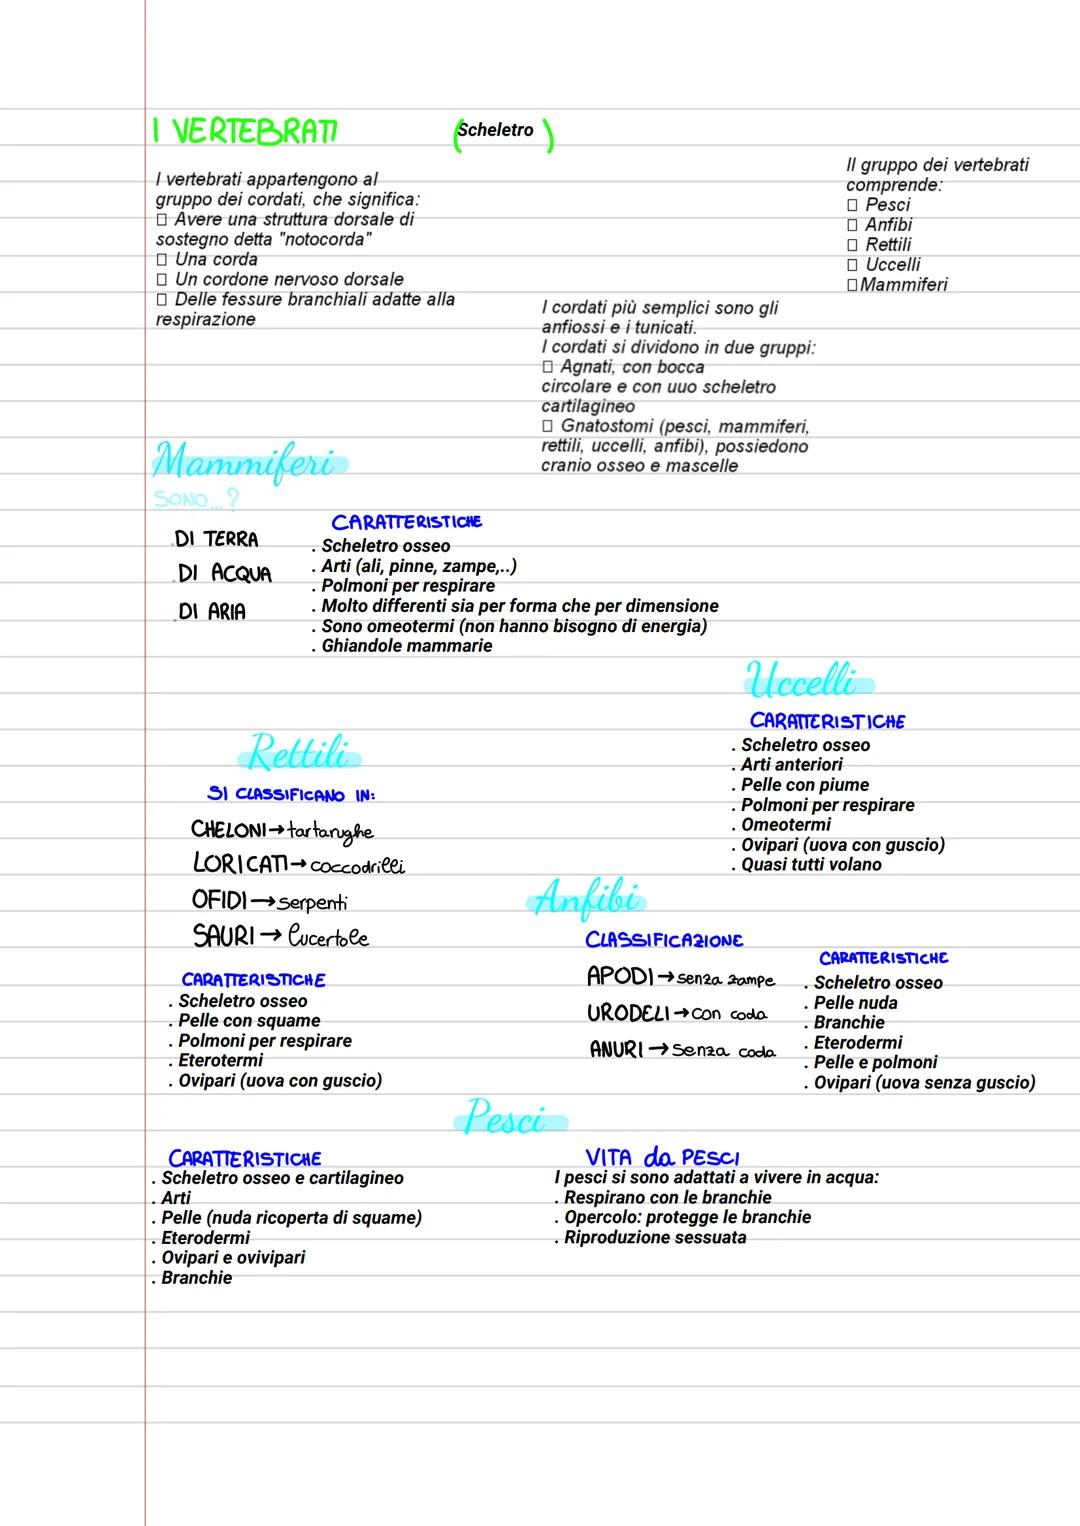 I VERTEBRATI (Scheletro)
I vertebrati appartengono al
gruppo dei cordati, che significa:
□ Avere una struttura dorsale di
sostegno detta "notocorda"
□ Una corda
□ Un cordone nervoso dorsale
□ Delle fessure branchiali adatte alla
respirazione
Il gruppo dei vertebrati
comprende:
□ Pesci
□ Anfibi
□ Rettili
□ Uccelli
□Mammiferi
I cordati più semplici sono gli
anfiossi e i tunicati.
I cordati si dividono in due gruppi:
□ Agnati, con bocca
circolare e con uuo scheletro
cartilagineo
□ Gnatostomi (pesci, mammiferi,
rettili, uccelli, anfibi), possiedono
cranio osseo e mascelle
Mammiferi
SONO...?
.DI TERRA
.DI ACQUA
.DI ARIA
CARATTERISTICHE
. Scheletro osseo
. Arti (ali, pinne, zampe,..)
. Polmoni per respirare
. Molto differenti sia per forma che per dimensione
. Sono omeotermi (non hanno bisogno di energia)
. Ghiandole mammarie
Uccelli
CARATTERISTICHE
. Scheletro osseo
. Arti anteriori
. Pelle con piume
. Polmoni per respirare
. Omeotermi
. Ovipari (uova con guscio)
. Quasi tutti volano
Rettili
SI CLASSIFICANO IN:
CHELONI→tartarughe
LORICATI→coccodrilli
OFIDI→serpenti
SAURI→lucertole
CARATTERISTICHE
. Scheletro osseo
. Pelle con squame
. Polmoni per respirare
. Eterotermi
. Ovipari (uova con guscio)
Anfibi
CLASSIFICAZIONE
APODI→senza zampe
URODELI→con coda
ANURI→senza coda
CARATTERISTICHE
. Scheletro osseo
. Pelle nuda
. Branchie
. Eterodermi
. Pelle e polmoni
. Ovipari (uova senza guscio)
Pesci
CARATTERISTICHE
. Scheletro osseo e cartilagineo
. Arti
. Pelle (nuda ricoperta di squame)
. Eterodermi
. Ovipari e ovivipari
. Branchie
VITA da PESCI
I pesci si sono adattati a vivere in acqua:
. Respirano con le branchie
. Opercolo: protegge le branchie
. Riproduzione sessuata